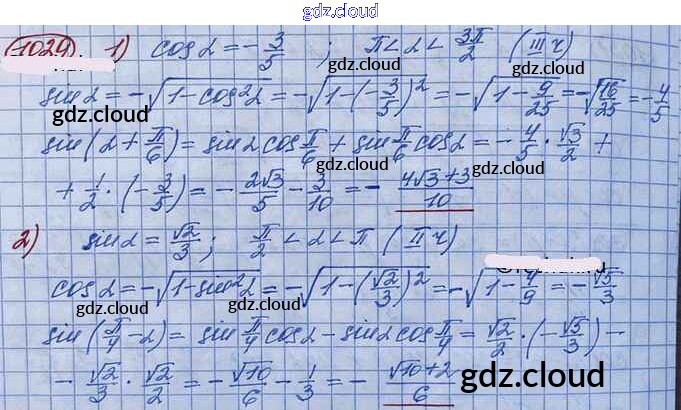 gdz.cloud
1029 1) cos α = -3/5 ; π < α < 3π/2 (III ч)
gdz.cloud
sin α = -√(1-cos²α) = -√(1-(-3/5)²) = -√(1-9/25) = -√(16/25) = -4/5
gdz.cloud gdz.cloud
sin(α+π/6) = sin α cos π/6 + sin π/6 cos α = -4/5 · √3/2 +
gdz.cloud gdz.cloud
+ 1/2 · (-3/5) = -2√3/5 - 3/10 = - (4√3+3)/10
gdz.cloud
2) sin α = √2/3 ; π/2 < α < π (II ч)
gdz.cloud
cos α = -√(1-sin²α) = -√(1-(√2/3)²) = -√(1-4/9) = -√5/3
gdz.cloud gdz.cloud
sin(π/4-α) = sin π/4 cos α - sin α cos π/4 = √2/2 · (-√5/3) -
- √2/3 · √2/2 = -√10/6 - 1/3 = - (√10+2)/6
gdz.cloud